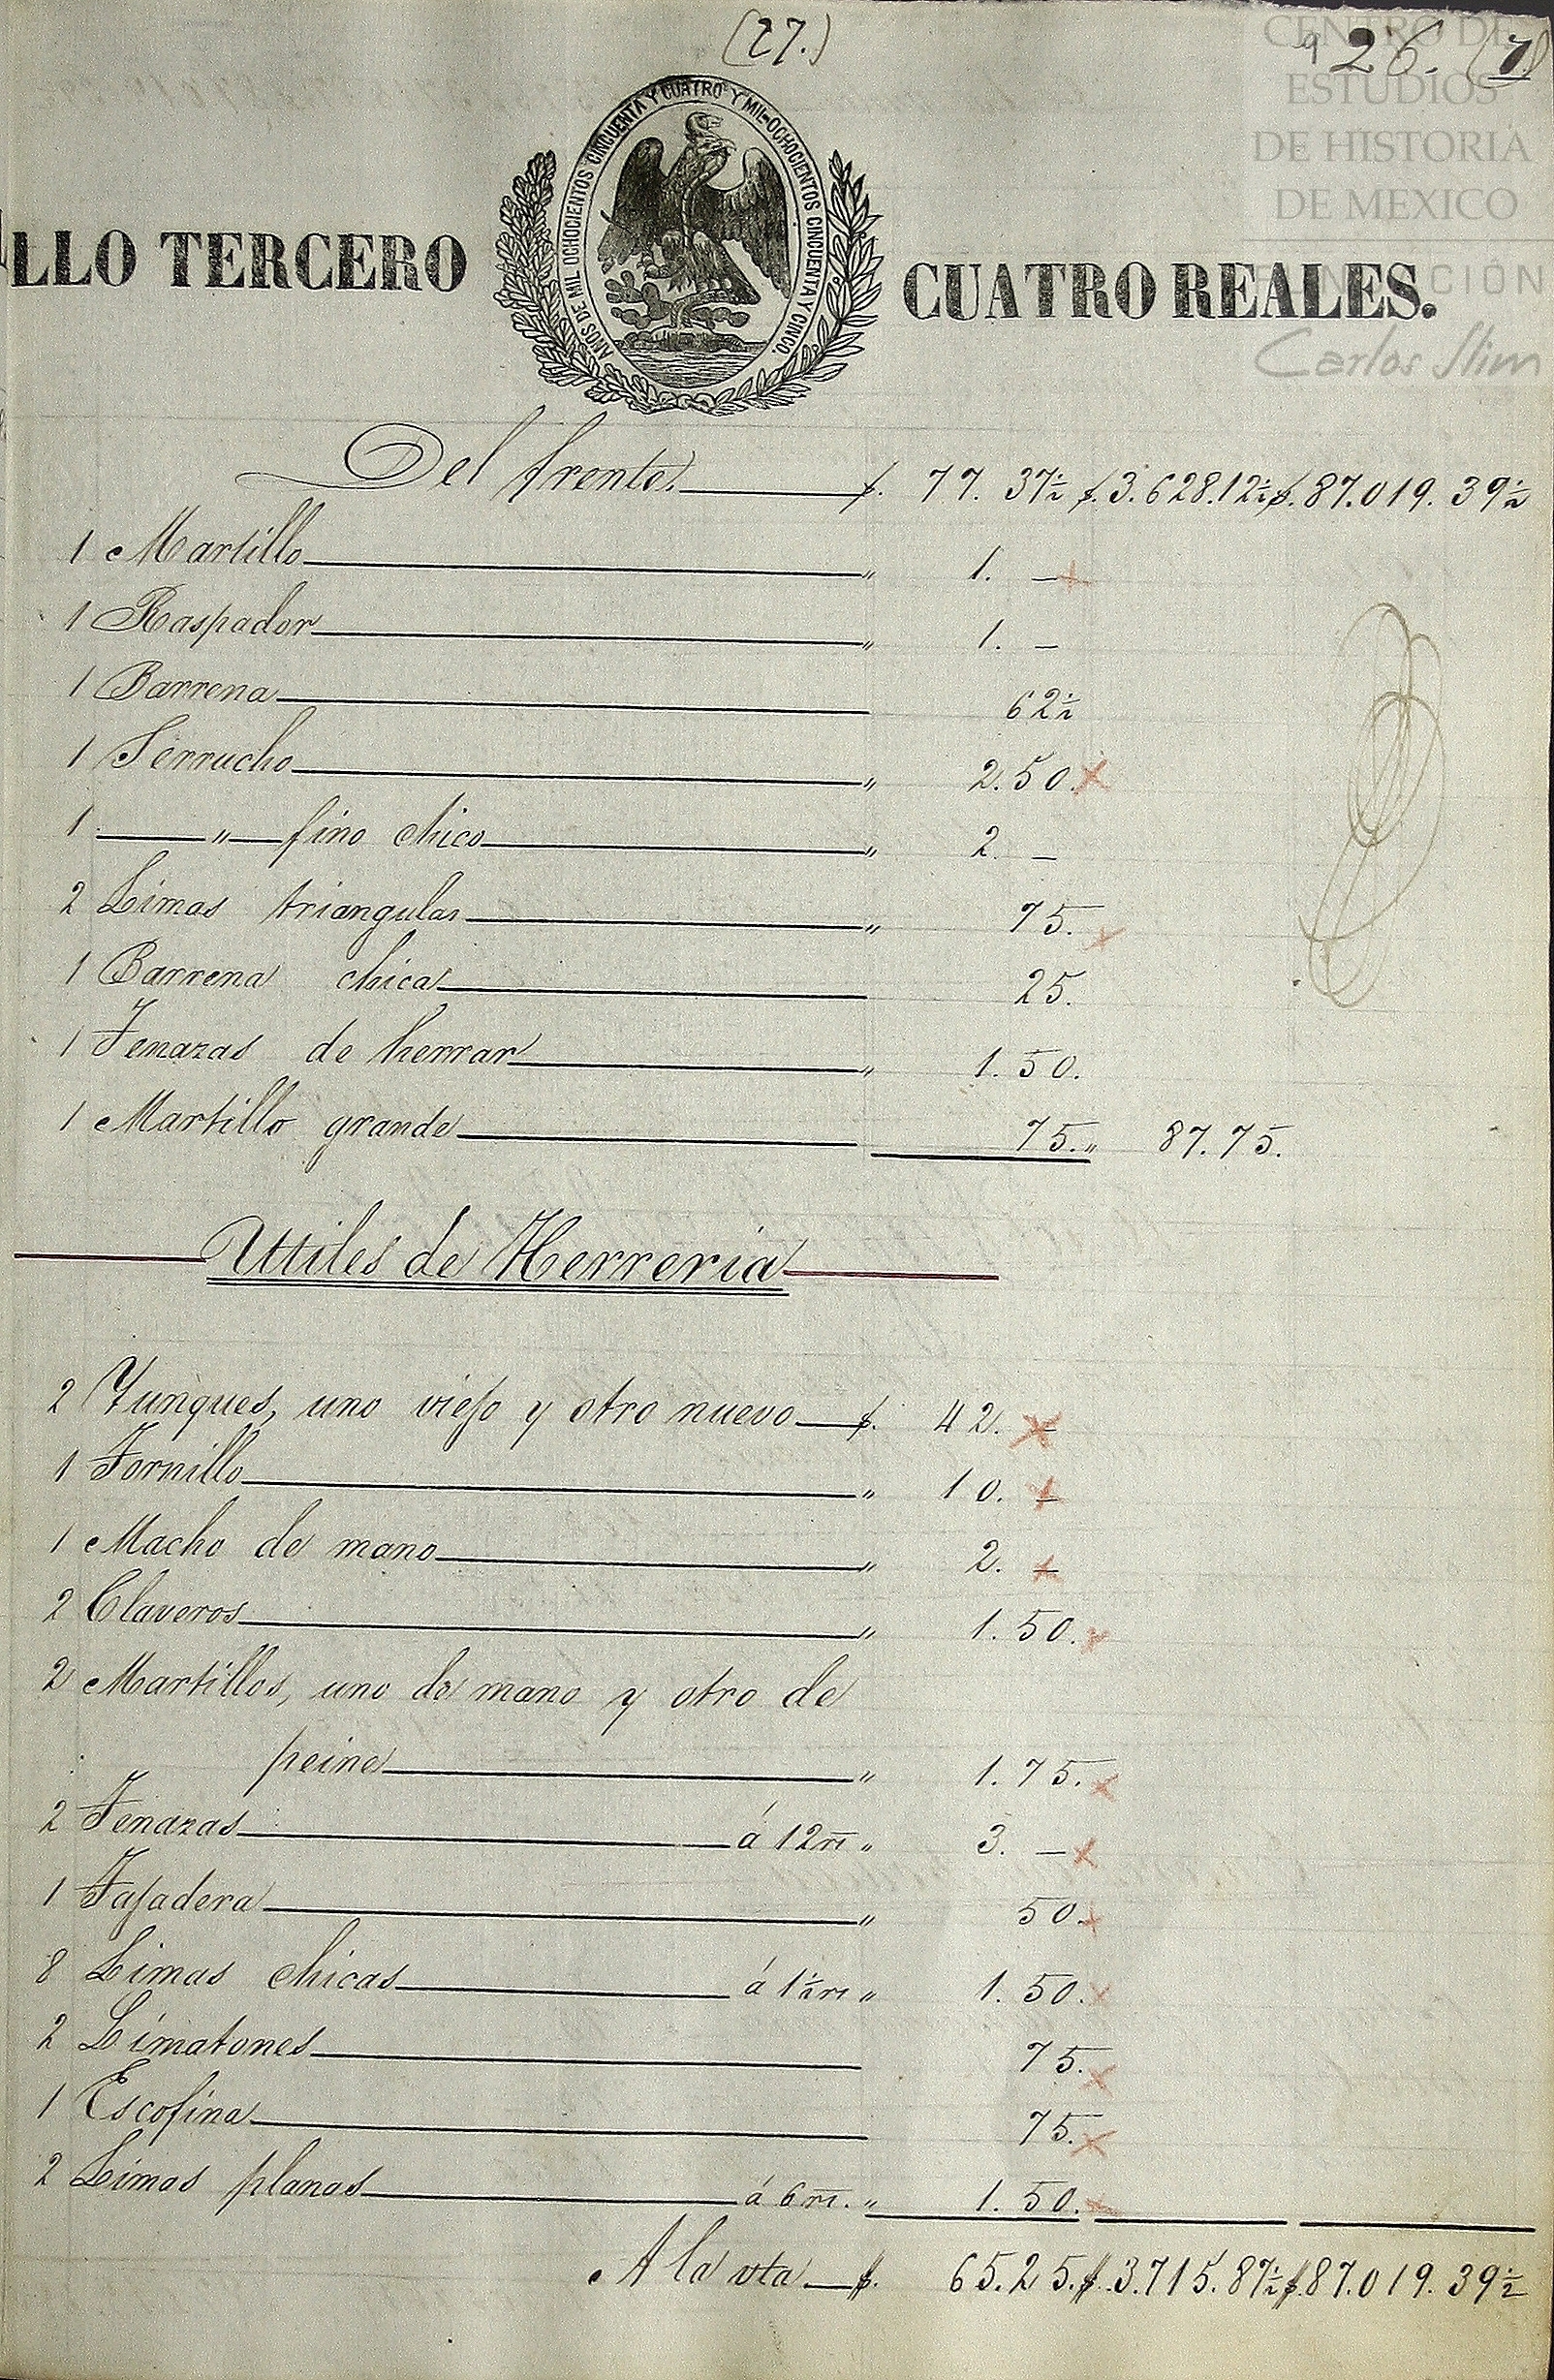 (27.)
9 26. (7)
CENTRO DE
ESTUDIOS
DE HISTORIA
DE MEXICO
FUNDACIÓN
Carlos Slim
LLO TERCERO
AÑOS DE MIL OCHOCIENTOS CINCUENTA Y CUATRO Y MIL OCHOCIENTOS CINCUENTA Y CINCO.
CUATRO REALES.
Del frente $. 77. 37½ $.3.628.12½ $.87.019.39½
1 Martillo " 1. –
1 Raspador " 1. –
1 Barrena 62½
1 Serrucho " 2.50.
1 — " — fino chico " 2. –
2 Limas triangular " 75.
1 Barrena chica 25.
1 Tenazas de herrar " 1.50.
1 Martillo grande 75. " 87.75.
Utiles de Herreria
2 Yunques, uno viejo y otro nuevo $. 42. –
1 Tornillo " 10. –
1 Macho de mano " 2. –
2 Claveros " 1.50.
2 Martillos, uno de mano y otro de
peine " 1.75.
2 Tenazas á 12 rs " 3. –
1 Tajadera " 50.
8 Limas chicas á 1½ rs " 1.50.
2 Limatones 75.
1 Escofina 75.
2 Limas planas á 6 rs. " 1.50.
A la vta $. 65.25. $.3.715.87½ $.87.019.39½